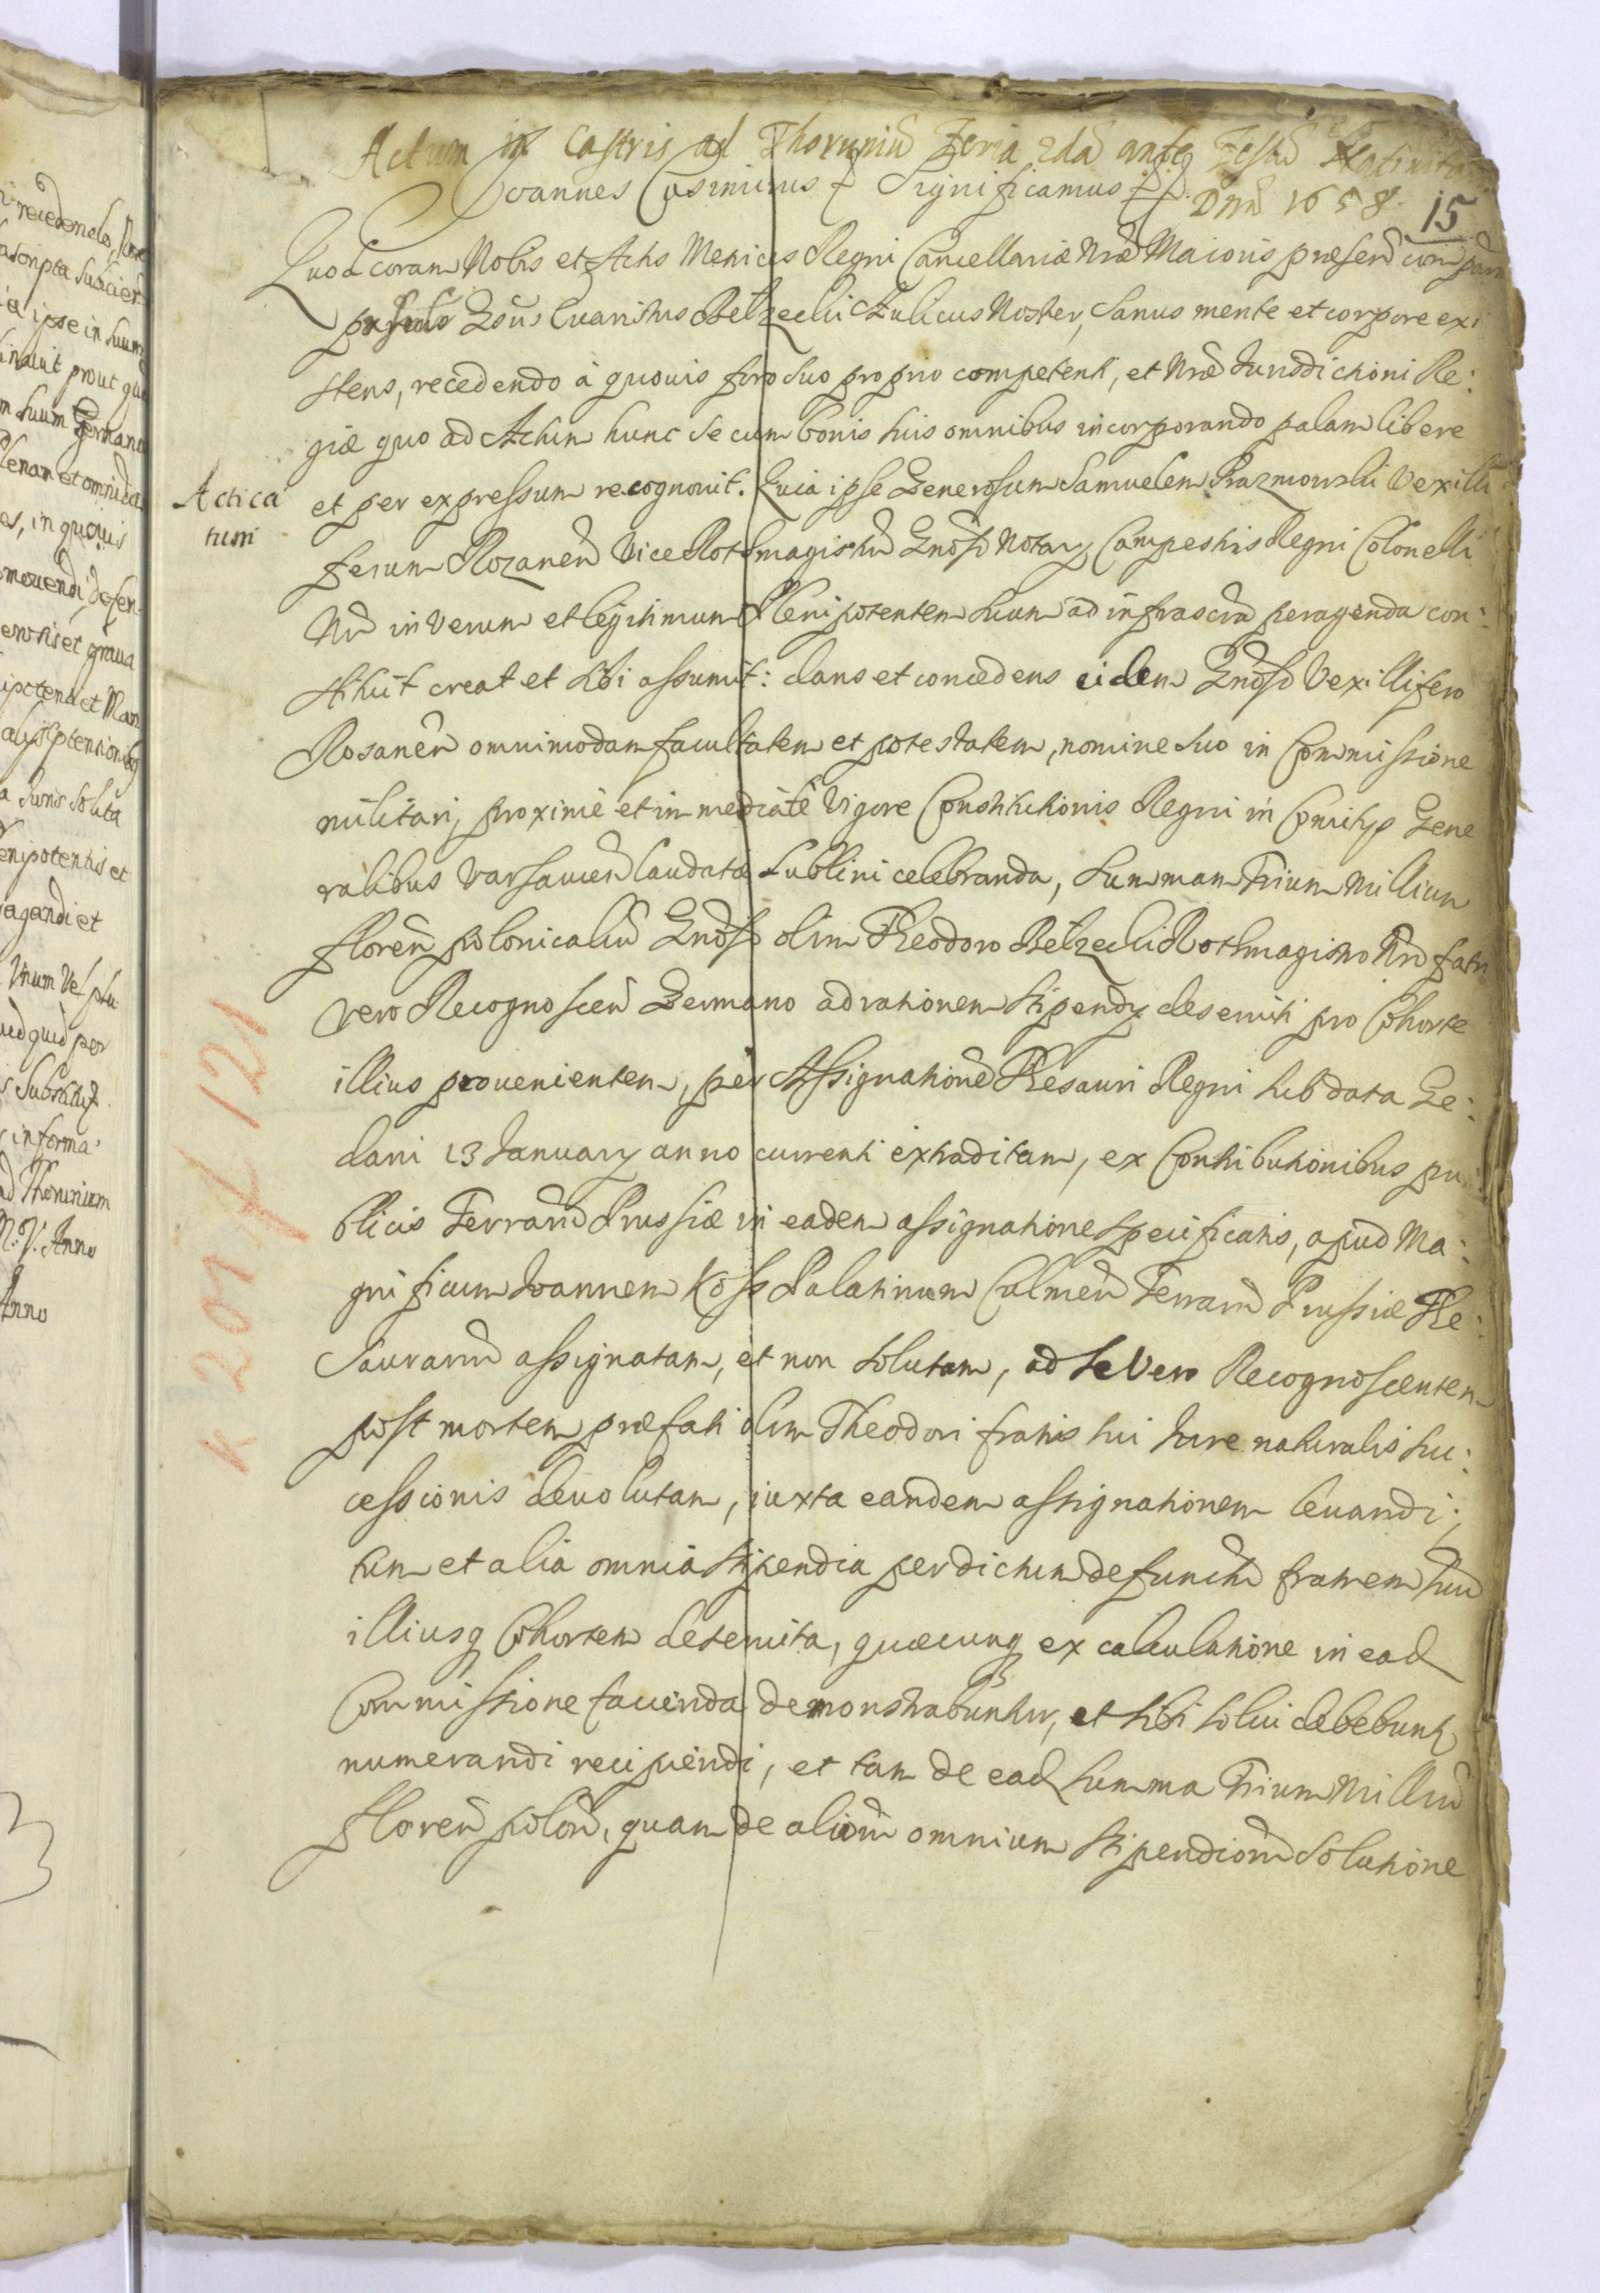 Actum in Castris ad Thoruniū Feria 2da ante Festū Nativita
Dni 1658.
Joannes Casimirus etc Significamus etc
15
Quod coram Nobis et Actis Metrices Regni Cancellariæ Nræ Maioris præsen com parn
Gsus Evaristus Belzecki Aulicus Noster, Sanus mente et corpore exi
stens, recedendo à quouis foro suo proprio competenti, et Nræ Iurisdictioni Re:
giæ quo ad Actum hunc se cum bonis suis omnibus incorporando palam libere
Actica
tum
et per expressum recognovit. Quia ipse Generosum Samuelem Prazmowski Vexilli
ferum Rozanen Vice Rothmagistrū Gnosi Notary Campestris Regni Colonelli
Nri in verum et legitimum Plenipotentem suum ad infrascra peragenda con:
stituit creat et sibi assumit: dans et concedens eidem Gnoso Vexillifero
Rosanen omnimodam facultatem et potestatem, nomine suo in Commissione
militari, proximè et immediatè vigore Constitutionis Regni in Comitys Gene
ralibus Varsavien laudatæ Lublini celebranda, summam Trium Millium
floren polonicaliū Gnoso olim Theodoro Belzecki Rothmagistro Nro fatri
vero Recognoscen Germano ad rationem stipendy deserviti pro Cohorte
illius provenientem, per Assignationē Thesauri Regni sub data Ge:
dani 13 January anno currenti extraditam, ex Contributionibus pu
blicis Terrarū Prussiæ in eadem assignatione specificatis, apud Ma:
gnificum Joannem Koss Palatinum Culmen Terrarū Prussiæ The:
saurariū assignatam, et non solutam, ad se vero Recognoscentem
post mortem præfati olim Theodori fratris sui Iure naturalis suc:
cessionis devolutam, iuxta eandem assignationem levandi;
tum et alia omnia stipendia per dictum defunctū fratrem suū
illiusq Cohortem deservita, quæcunq ex calculatione in ead
Commissione facienda demonstrabuntur, et sibi solui debebunt
numerandi recipiendi, et tam de ead summa Trium Milliū
floren polon, quam de aliorū omnium stipendiorū solutione
K 201 f 121
recedendo,
ascripta
ipse in suum
prout
m suum German
lenam et omnimo
es, in quouis
movendi, defen-
et grava
ipotens et Man
Iuris soluta
enipotentis et
agandi et
Vnum vel plu
quid per
informa:
ad Thorunium
Anno
Anno